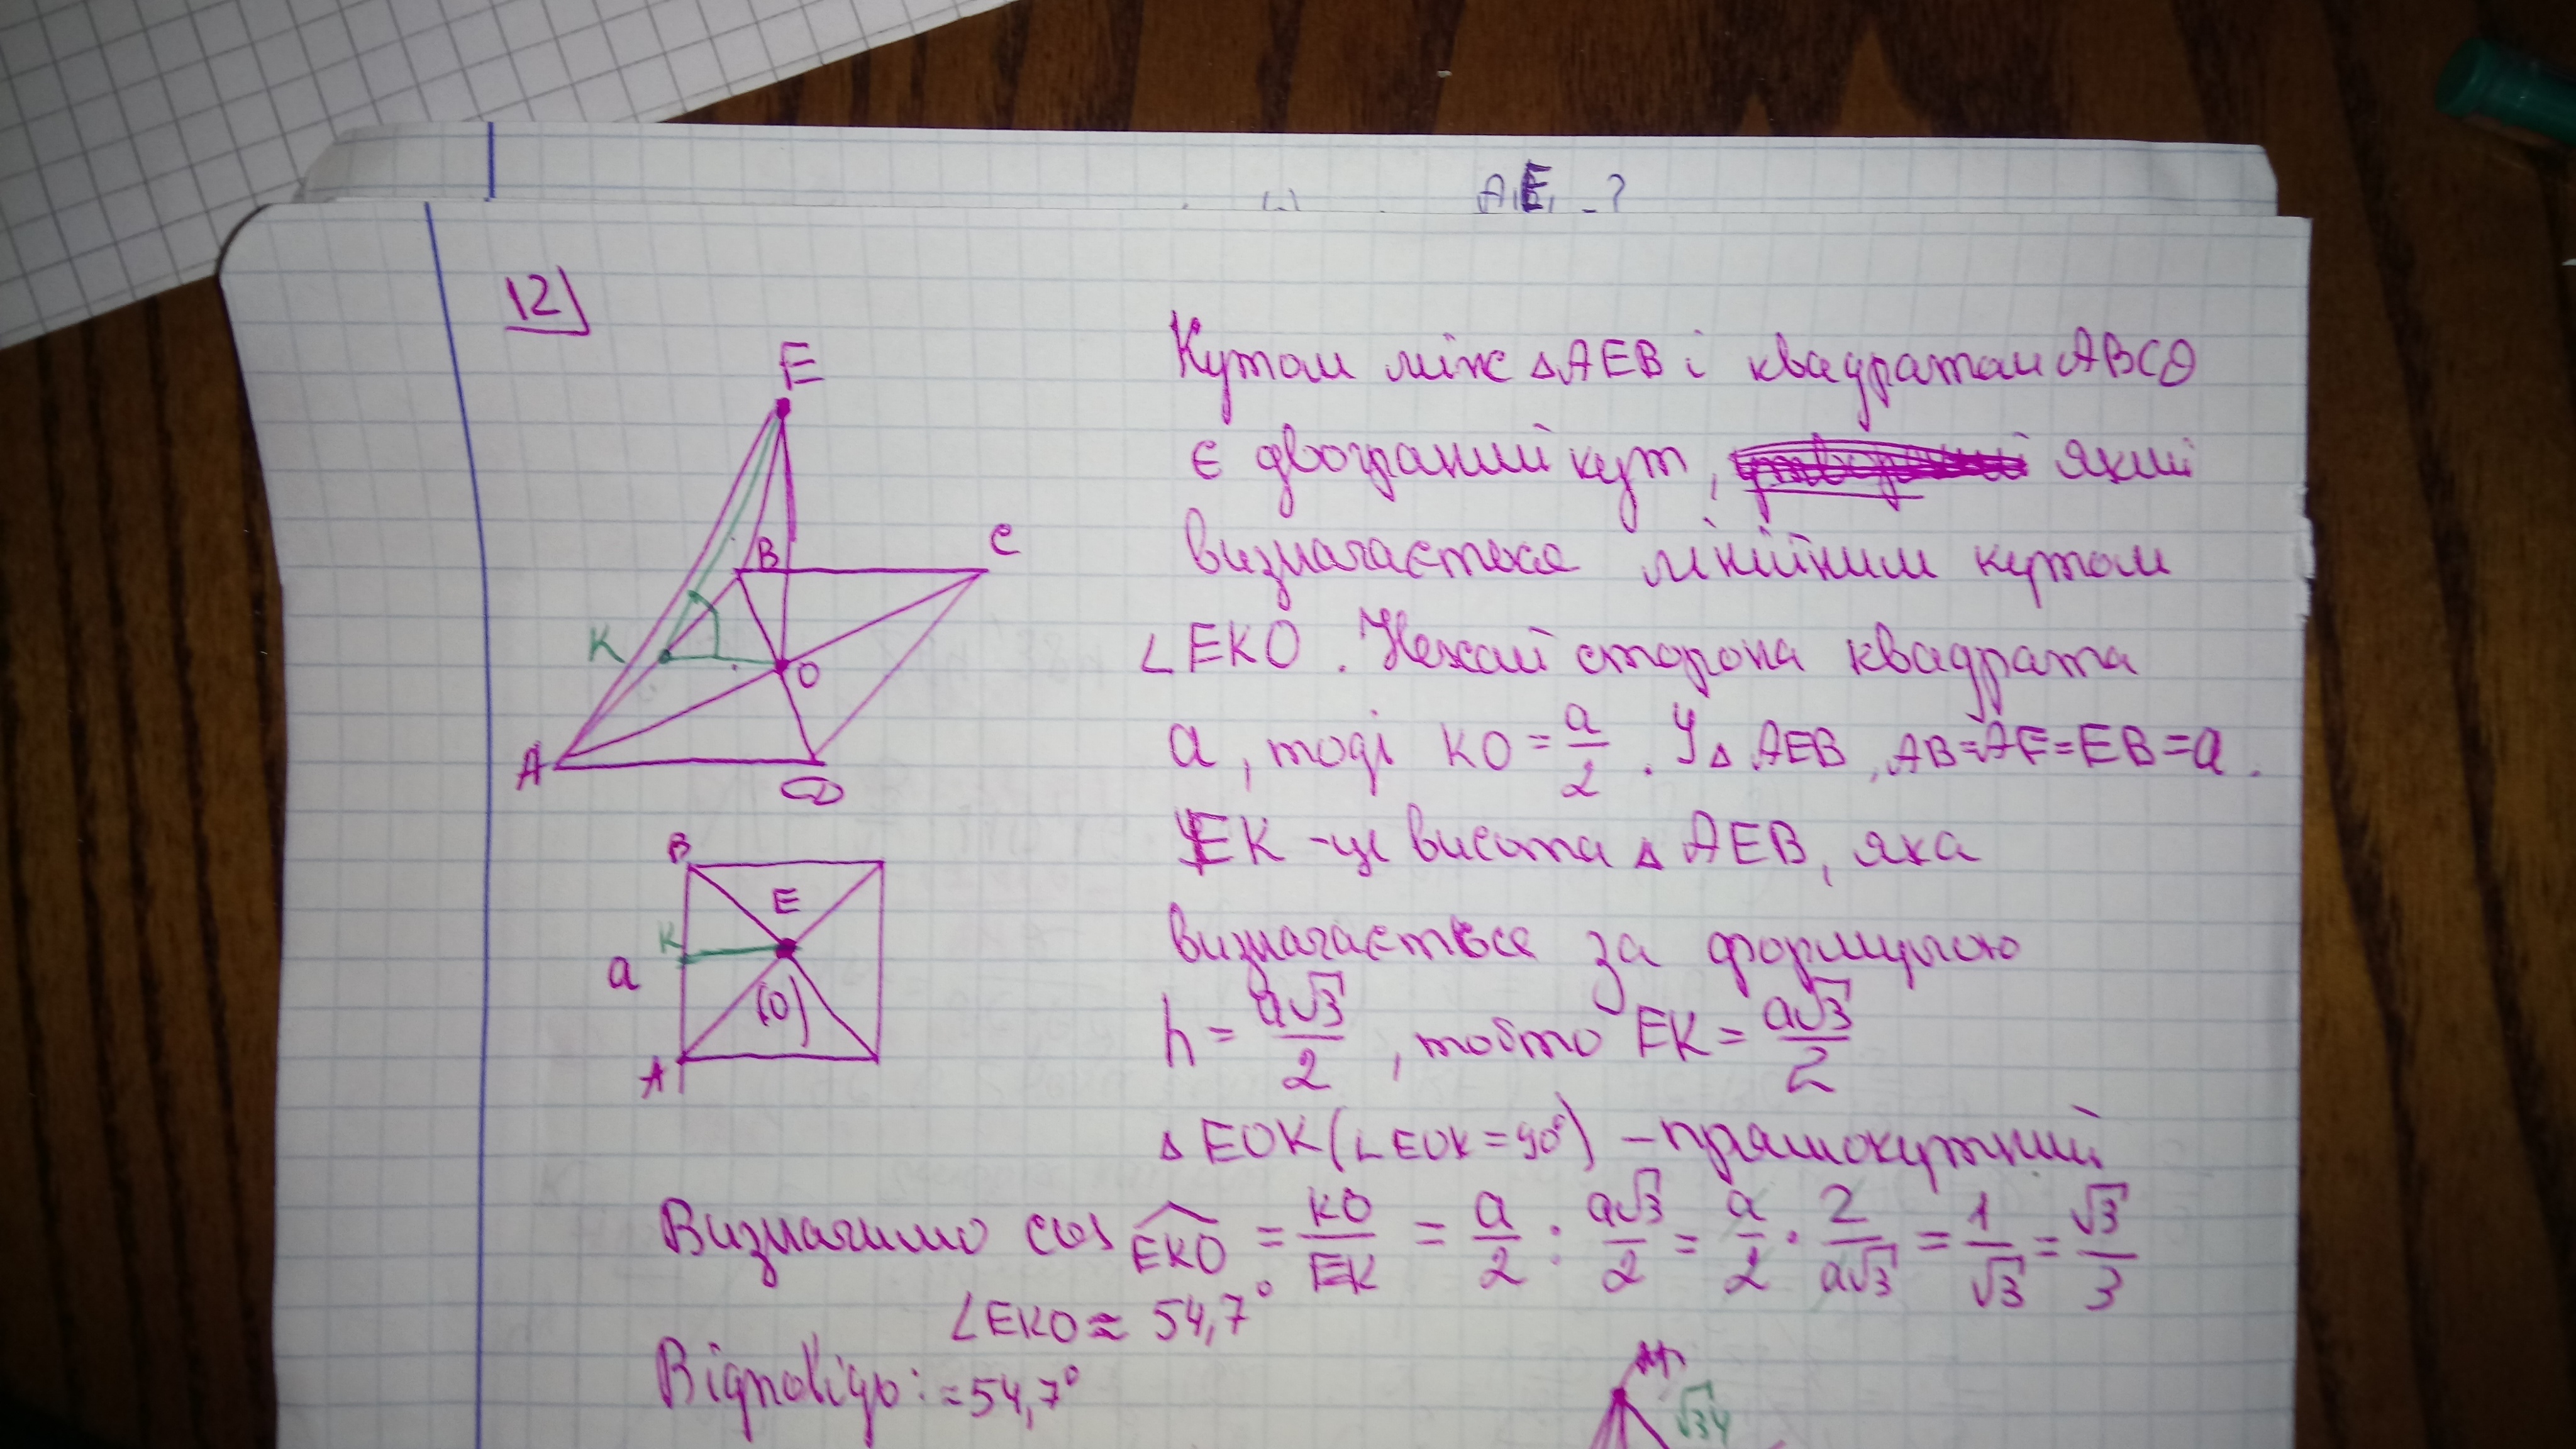 A₁E₁ - ?
12)
E
B
C
K
O
A
D
B
E
K
a
(O)
A
Кутом між △AEB і квадратом ABCD
є двогранний кут, який
визначається лінійним кутом
∠EKO. Нехай сторона квадрата
a, тоді KO = a/2. У △ AEB, AB=AE=EB=a.
EK - це висота △ AEB, яка
визначається за формулою
h = a√3/2, тобто EK = a√3/2
△ EOK (∠EOK = 90°) – прямокутний
Визначимо cos EKO = KO/EK = a/2 : a√3/2 = a/2 · 2/a√3 = 1/√3 = √3/3
∠EKO ≈ 54,7°
Відповідь: ≈54,7°
√34